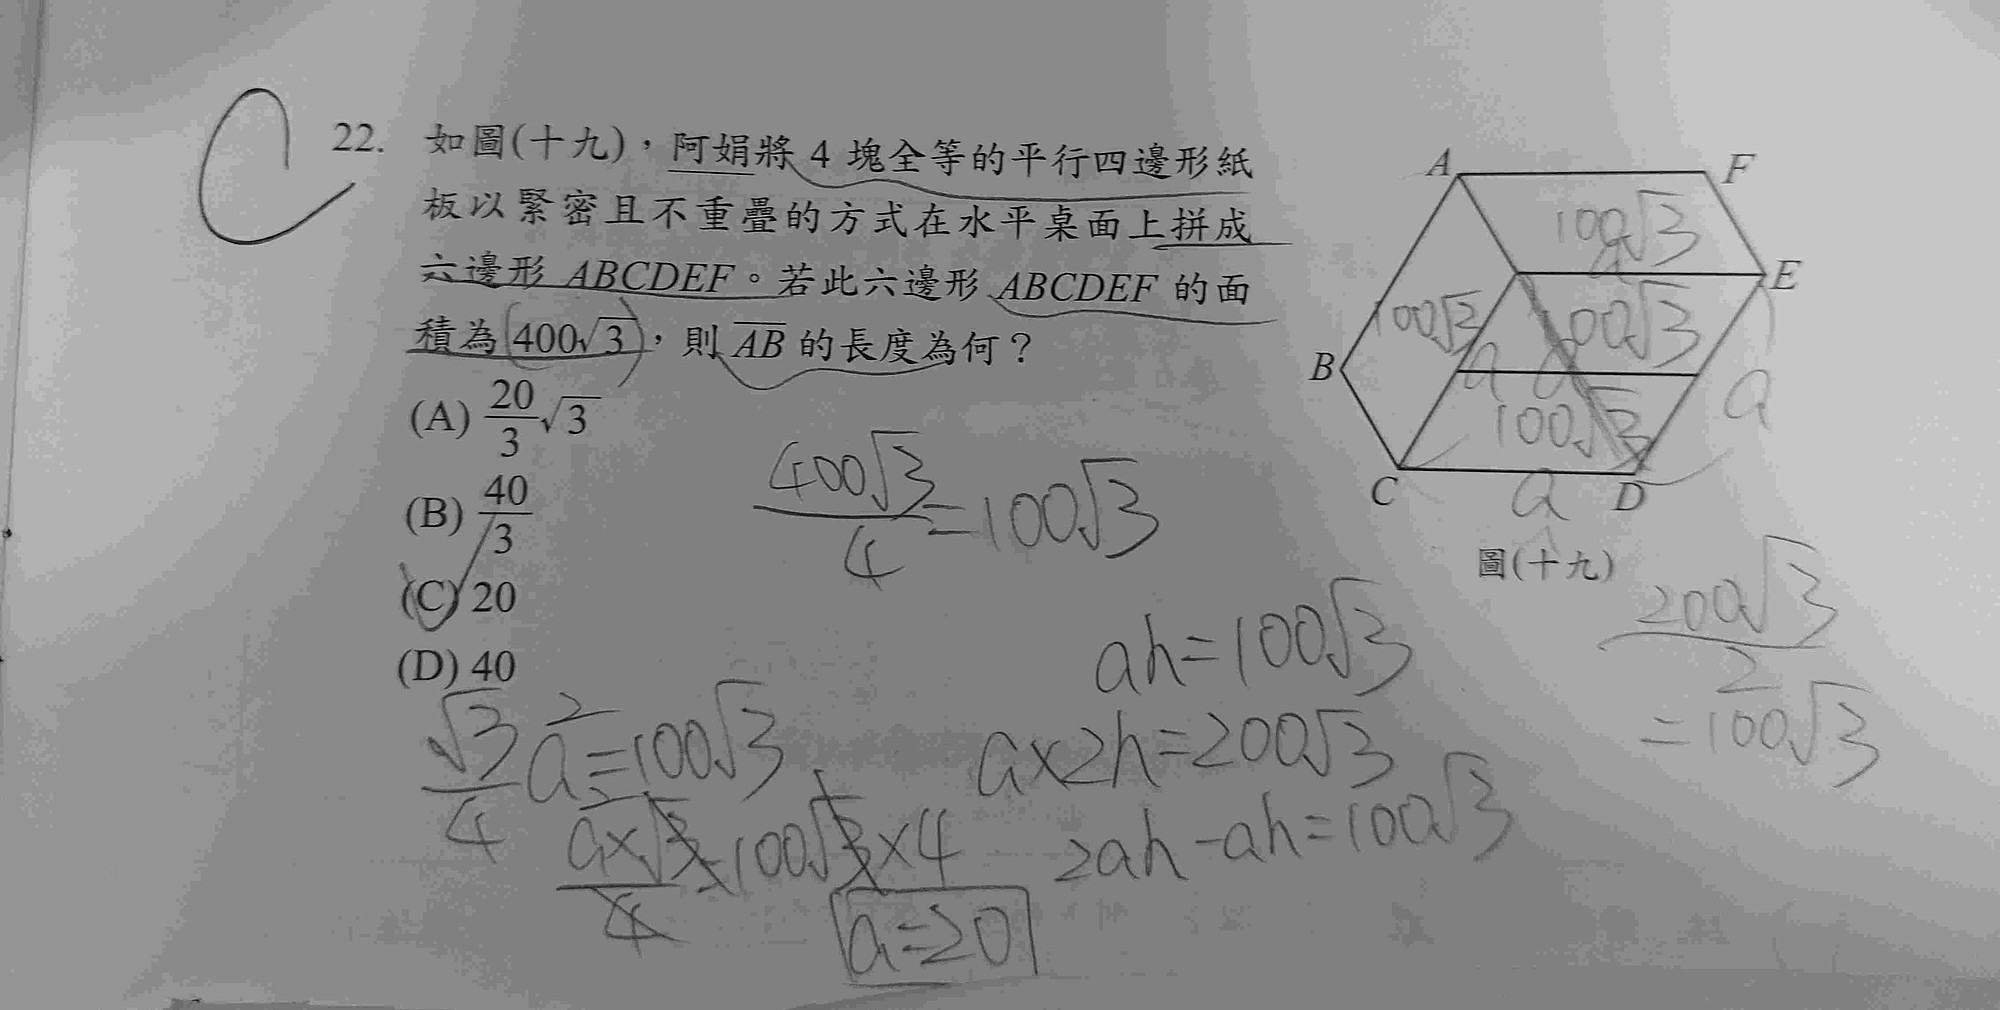 C
22. 如圖(十九)，阿娟將 4 塊全等的平行四邊形紙
板以緊密且不重疊的方式在水平桌面上拼成
六邊形 ABCDEF。若此六邊形 ABCDEF 的面
積為 400√3，則 AB 的長度為何？
(A) 20/3 √3
(B) 40/3
(C) 20
(D) 40
A F
100√3
a
E
100√3
100√3
B
a a
a
100√3
C a D
圖(十九)
400√3/4 = 100√3
200√3/2
= 100√3
ah = 100√3
a×2h = 200√3
2ah - ah = 100√3
√3/4 a² = 100√3
a²×√3/4 = 100√3×4
a = 20